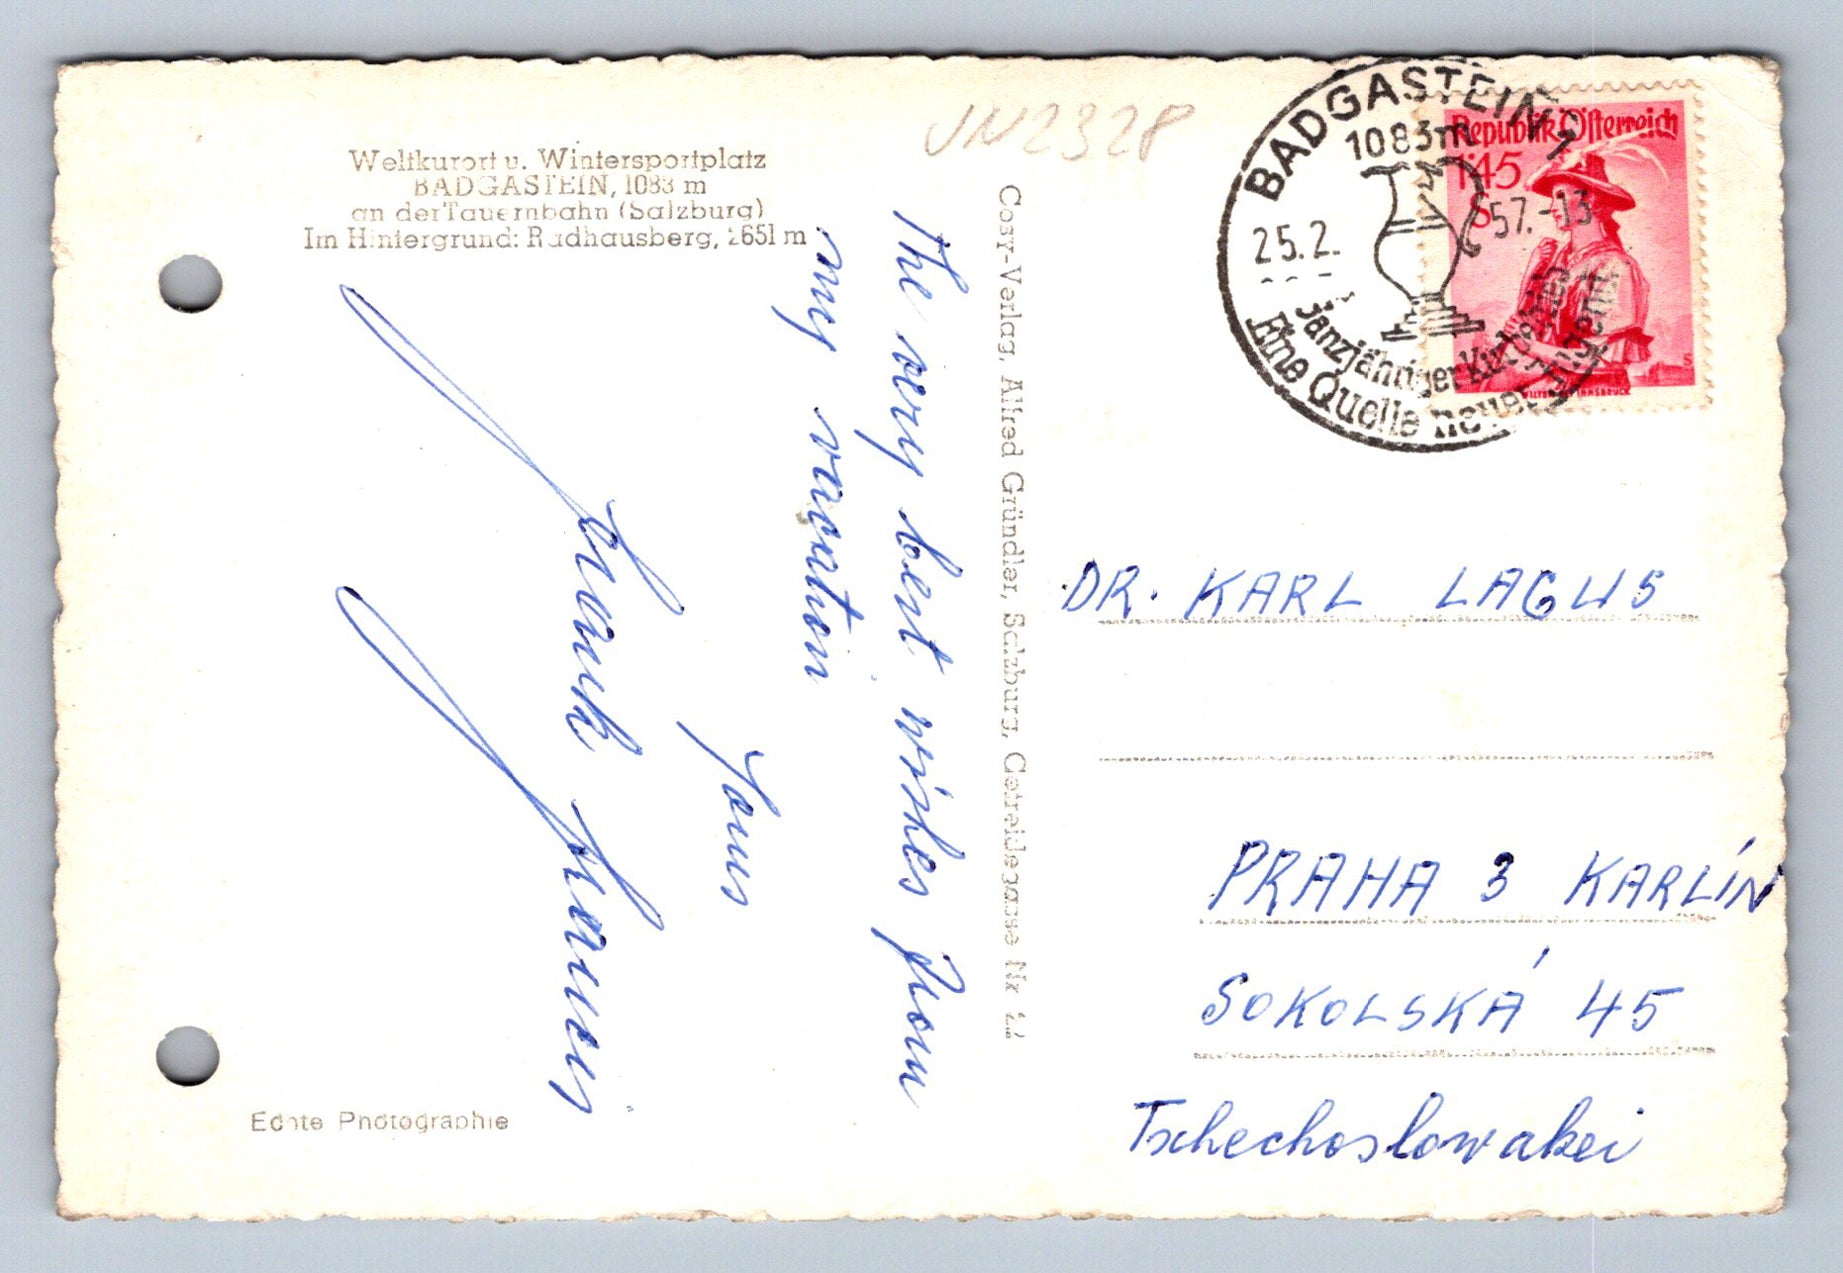 Weltkurort u. Wintersportplatz
BADGASTEIN, 1083 m
an der Tauernbahn (Salzburg)
Im Hintergrund: Radhausberg, 2651 m
VN2328
The very best wishes from
my vacation
Yours
Frank
Echte Photographie
Cosy-Verlag, Alfred Gründler, Salzburg, Getreidegasse Nr.
BADGASTEIN 1
1083m
25.2. 57.-13
Ganzjähriger Kurbetrieb
Eine Quelle neuer Jugend
Republik Österreich
1.45
S
WILTEN BEI INNSBRUCK
DR. KARL LAGUS
PRAHA 3 KARLÍN
SOKOLSKÁ 45
Tschechoslowakei